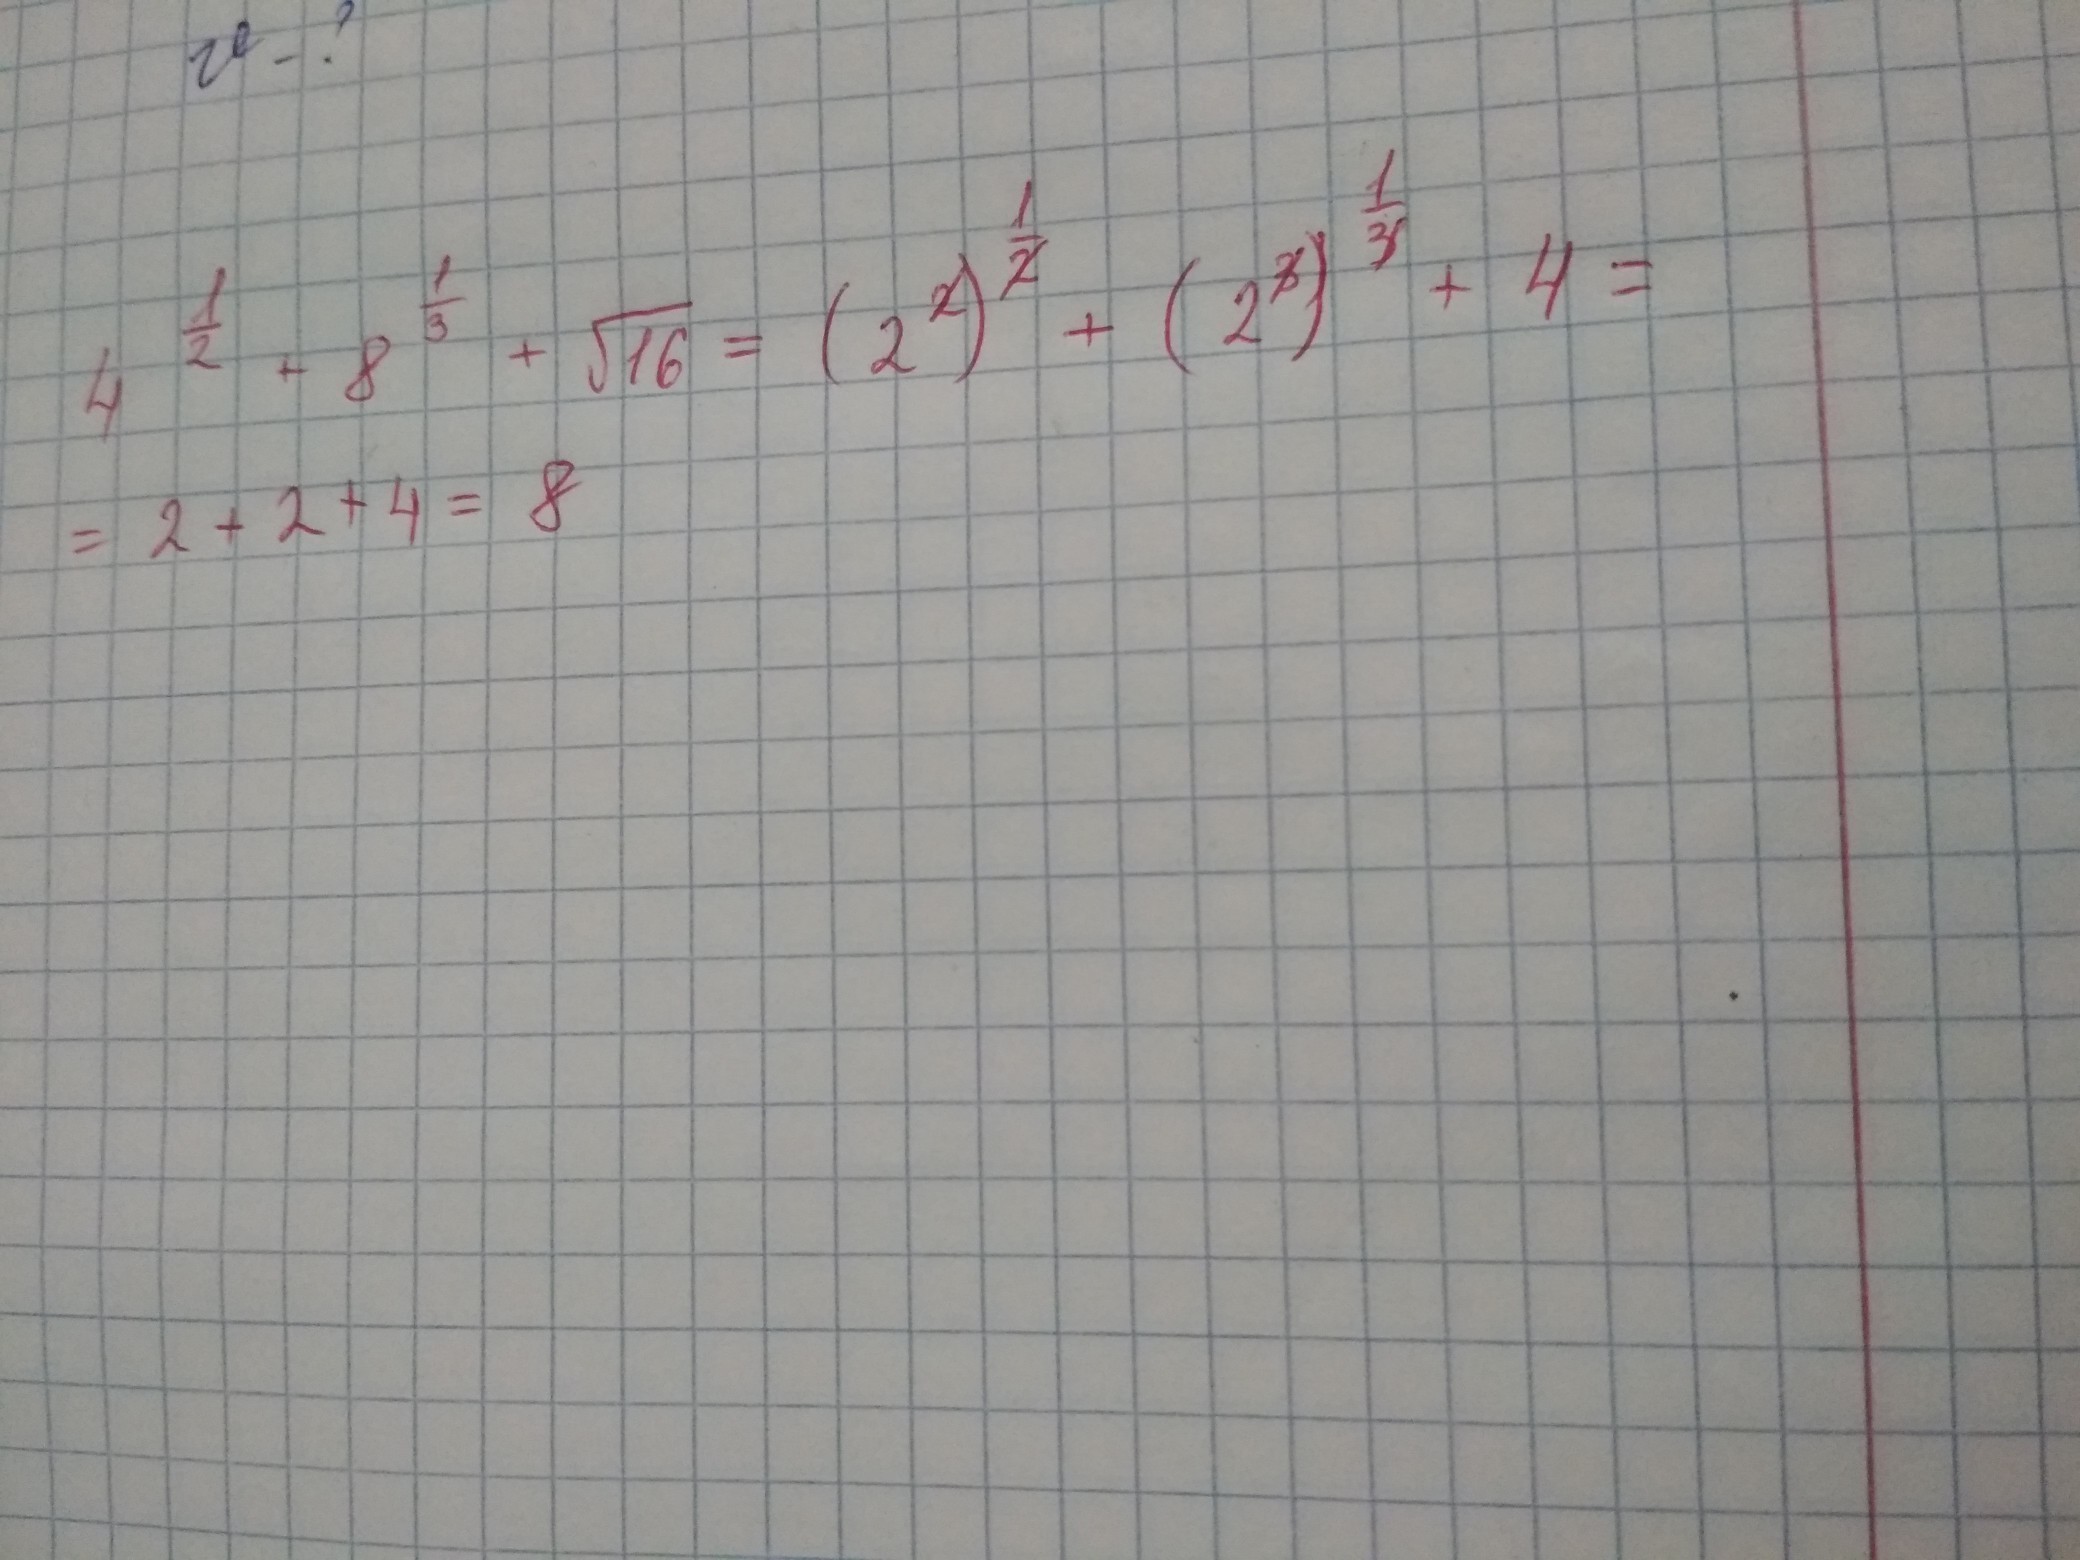 v - ?
4^{\frac{1}{2}} + 8^{\frac{1}{3}} + \sqrt{16} = (2^2)^{\frac{1}{2}} + (2^3)^{\frac{1}{3}} + 4 =
= 2 + 2 + 4 = 8